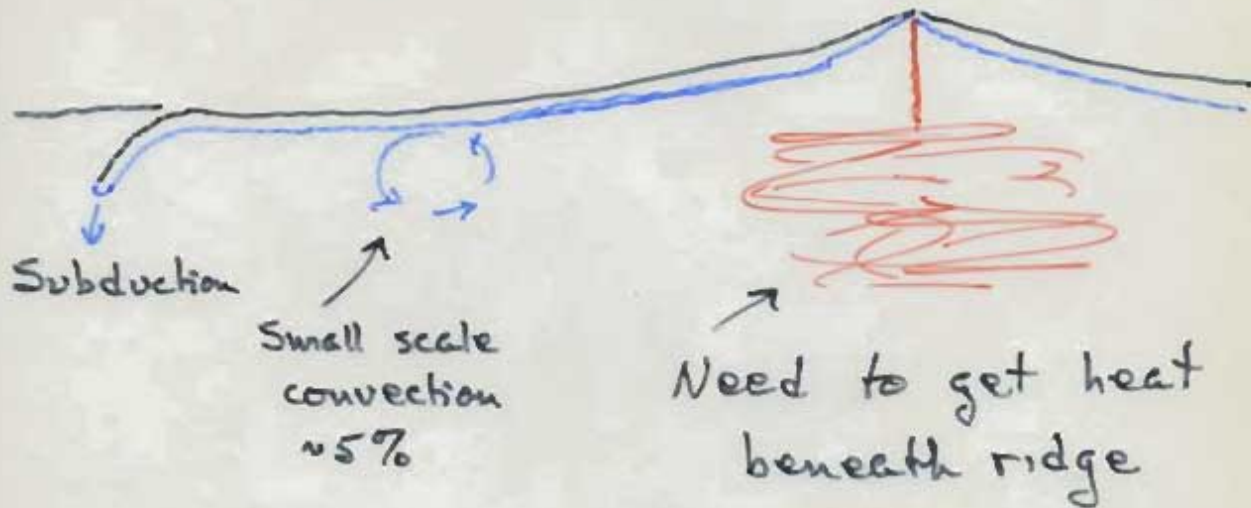 Subduction
Small scale
convection
~5%
Need to get heat
beneath ridge